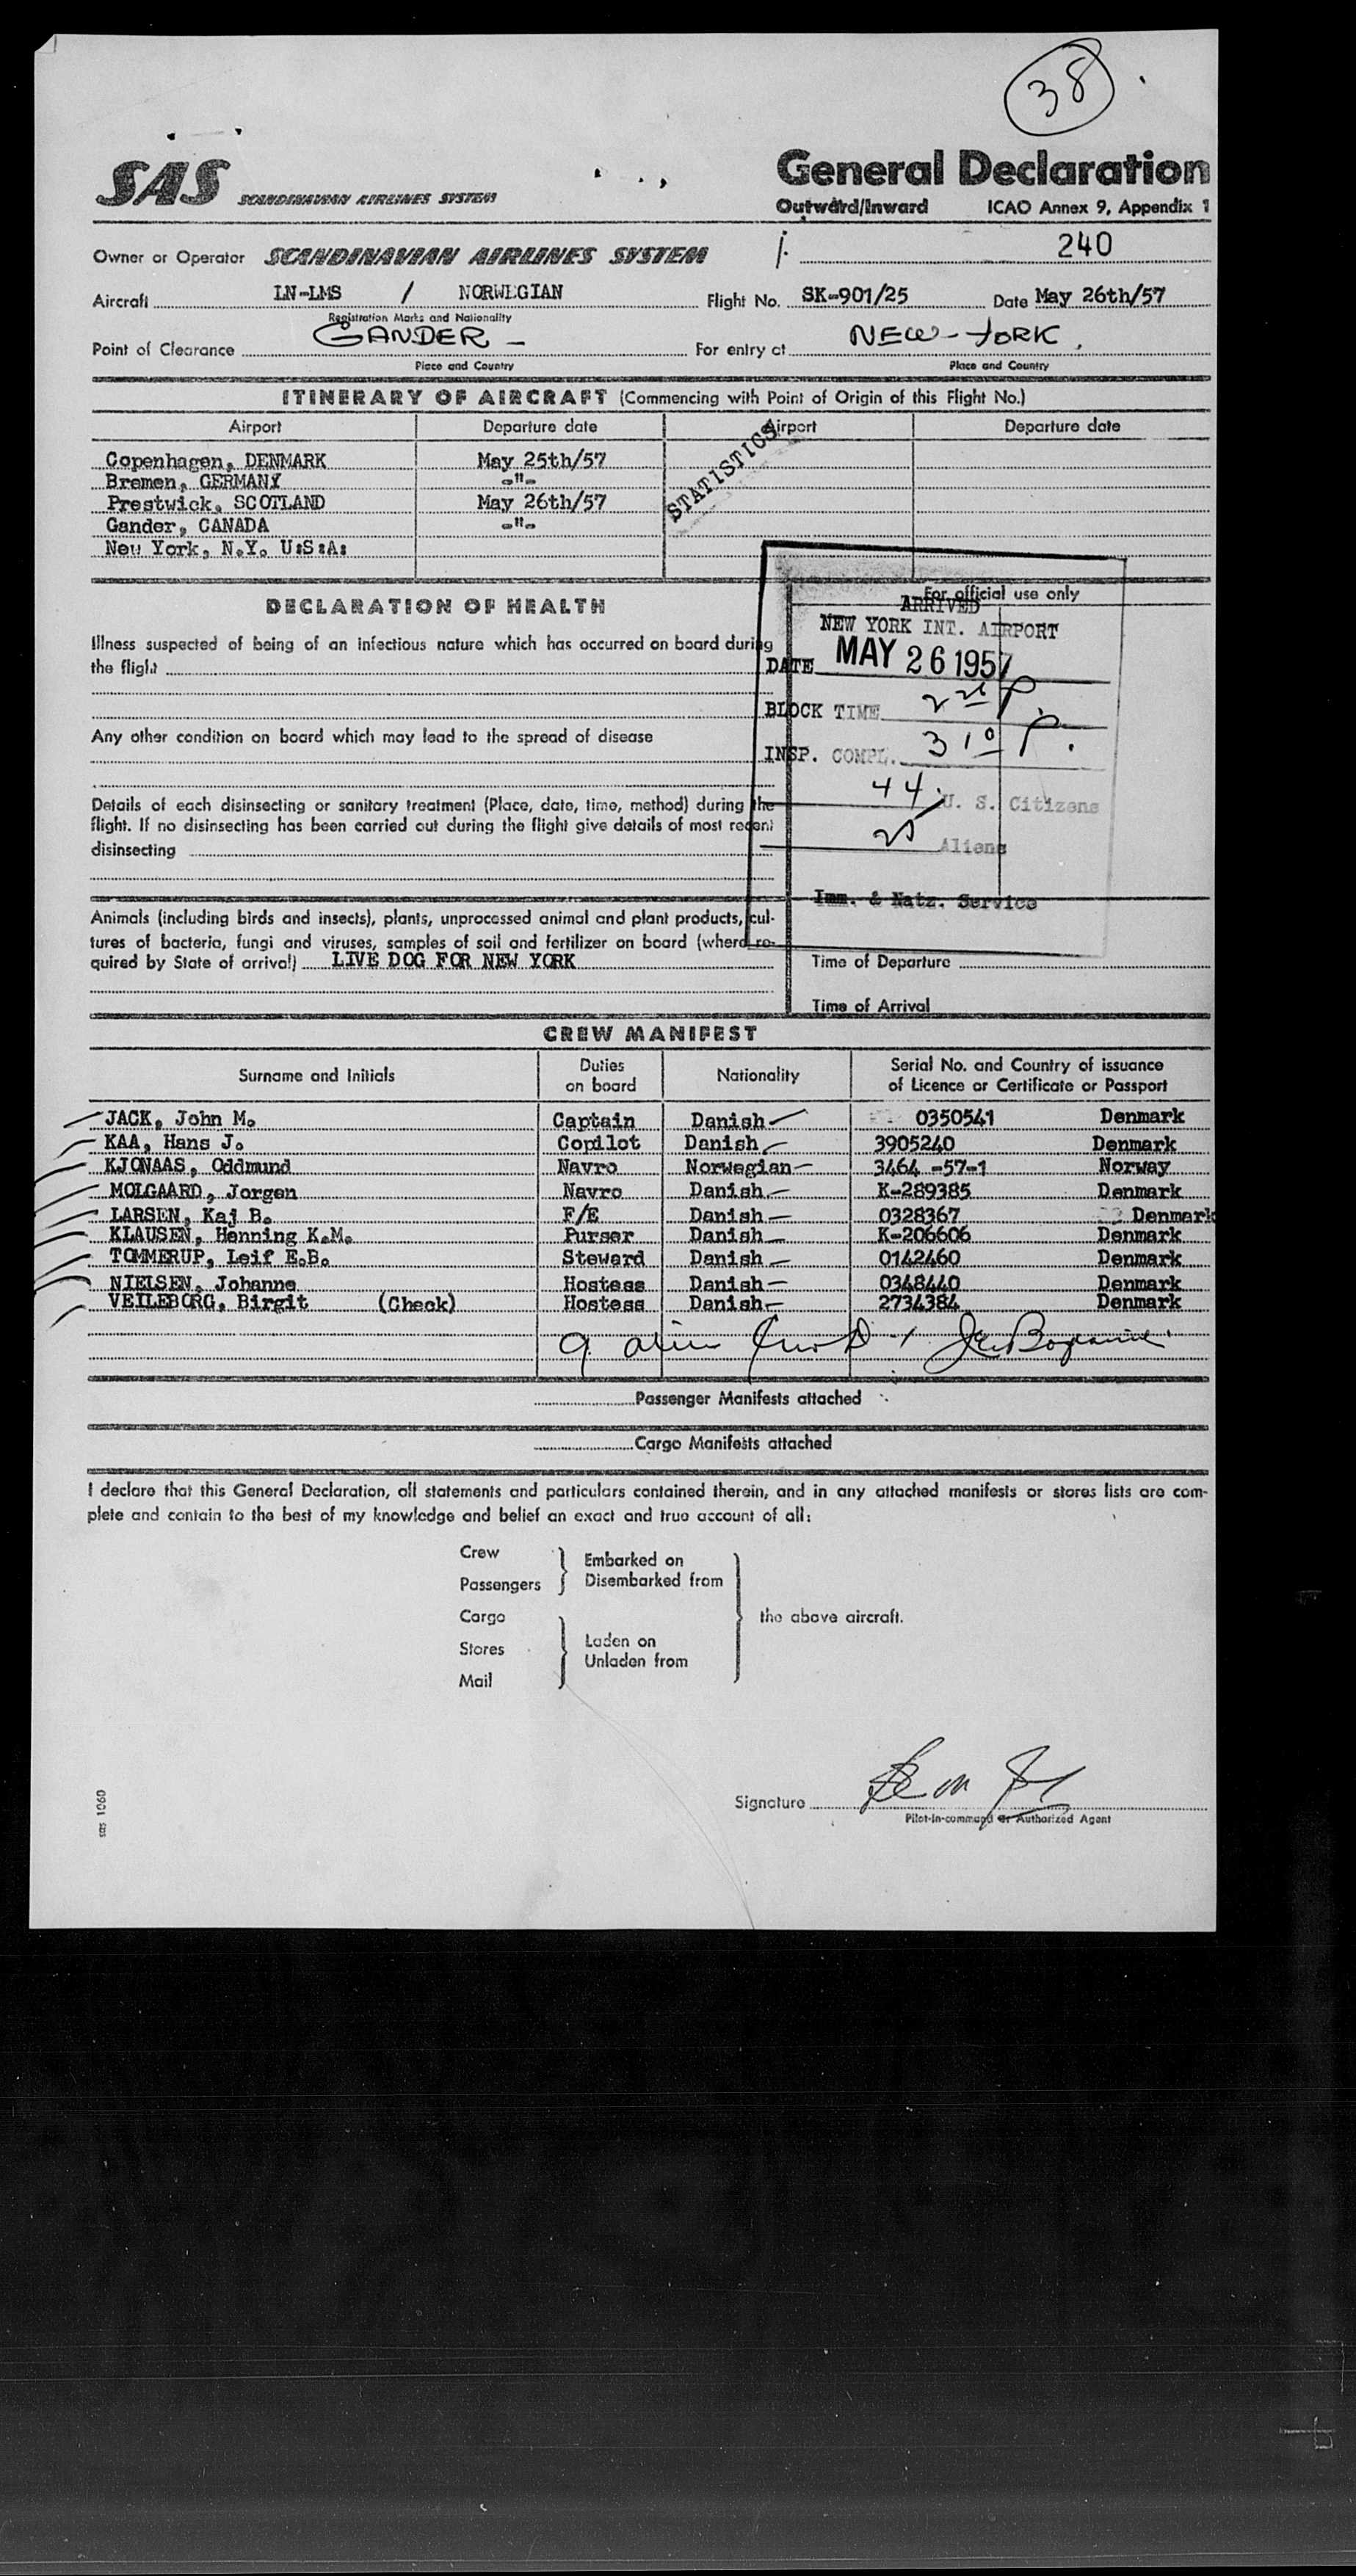 38
SAS SCANDINAVIAN AIRLINES SYSTEM
General Declaration
Outward/Inward ICAO Annex 9, Appendix 1
Owner or Operator SCANDINAVIAN AIRLINES SYSTEM 240
Aircraft LN-LMS / NORWEGIAN Flight No. SK-901/25 Date May 26th/57
Registration Marks and Nationality
Point of Clearance GANDER - For entry at NEW-YORK.
Place and Country Place and Country
ITINERARY OF AIRCRAFT (Commencing with Point of Origin of this Flight No.)
Airport Departure date Airport Departure date
Copenhagen, DENMARK May 25th/57
Bremen, GERMANY -"-
Prestwick, SCOTLAND May 26th/57
Gander, CANADA -"-
New York, N.Y. U:S:A:
STATISTICS
DECLARATION OF HEALTH
Illness suspected of being of an infectious nature which has occurred on board during
the flight
Any other condition on board which may lead to the spread of disease
Details of each disinsecting or sanitary treatment (Place, date, time, method) during the
flight. If no disinsecting has been carried out during the flight give details of most recent
disinsecting
Animals (including birds and insects), plants, unprocessed animal and plant products, cul-
tures of bacteria, fungi and viruses, samples of soil and fertilizer on board (where re-
quired by State of arrival) LIVE DOG FOR NEW YORK
For official use only
ARRIVED
NEW YORK INT. AIRPORT
DATE MAY 26 1957
BLOCK TIME P.
INSP. COMPL. 3 10 P.
44 U. S. Citizens
25 Aliens
Imm. & Natz. Service
Time of Departure
Time of Arrival
CREW MANIFEST
Surname and Initials Duties on board Nationality Serial No. and Country of issuance of Licence or Certificate or Passport
JACK, John M. Captain Danish 0350541 Denmark
KAA, Hans J. Copilot Danish 3905240 Denmark
KJONAAS, Oddmund Navro Norwegian 3464 -57-1 Norway
MOLGAARD, Jorgen Navro Danish K-289385 Denmark
LARSEN, Kaj B. F/E Danish 0328367 Denmark
KLAUSEN, Henning K.M. Purser Danish K-206606 Denmark
TOMMERUP, Leif E.B. Steward Danish 0142460 Denmark
NIELSEN, Johanne Hostess Danish 0348440 Denmark
VEILEBORG, Birgit (Check) Hostess Danish 2734384 Denmark
9 alien
Passenger Manifests attached
Cargo Manifests attached
I declare that this General Declaration, all statements and particulars contained therein, and in any attached manifests or stores lists are com-
plete and contain to the best of my knowledge and belief an exact and true account of all:
Crew
Passengers
Embarked on
Disembarked from
Cargo
Stores
Mail
Laden on
Unladen from
the above aircraft.
Signature
Pilot-in-command or Authorized Agent
sas 1060